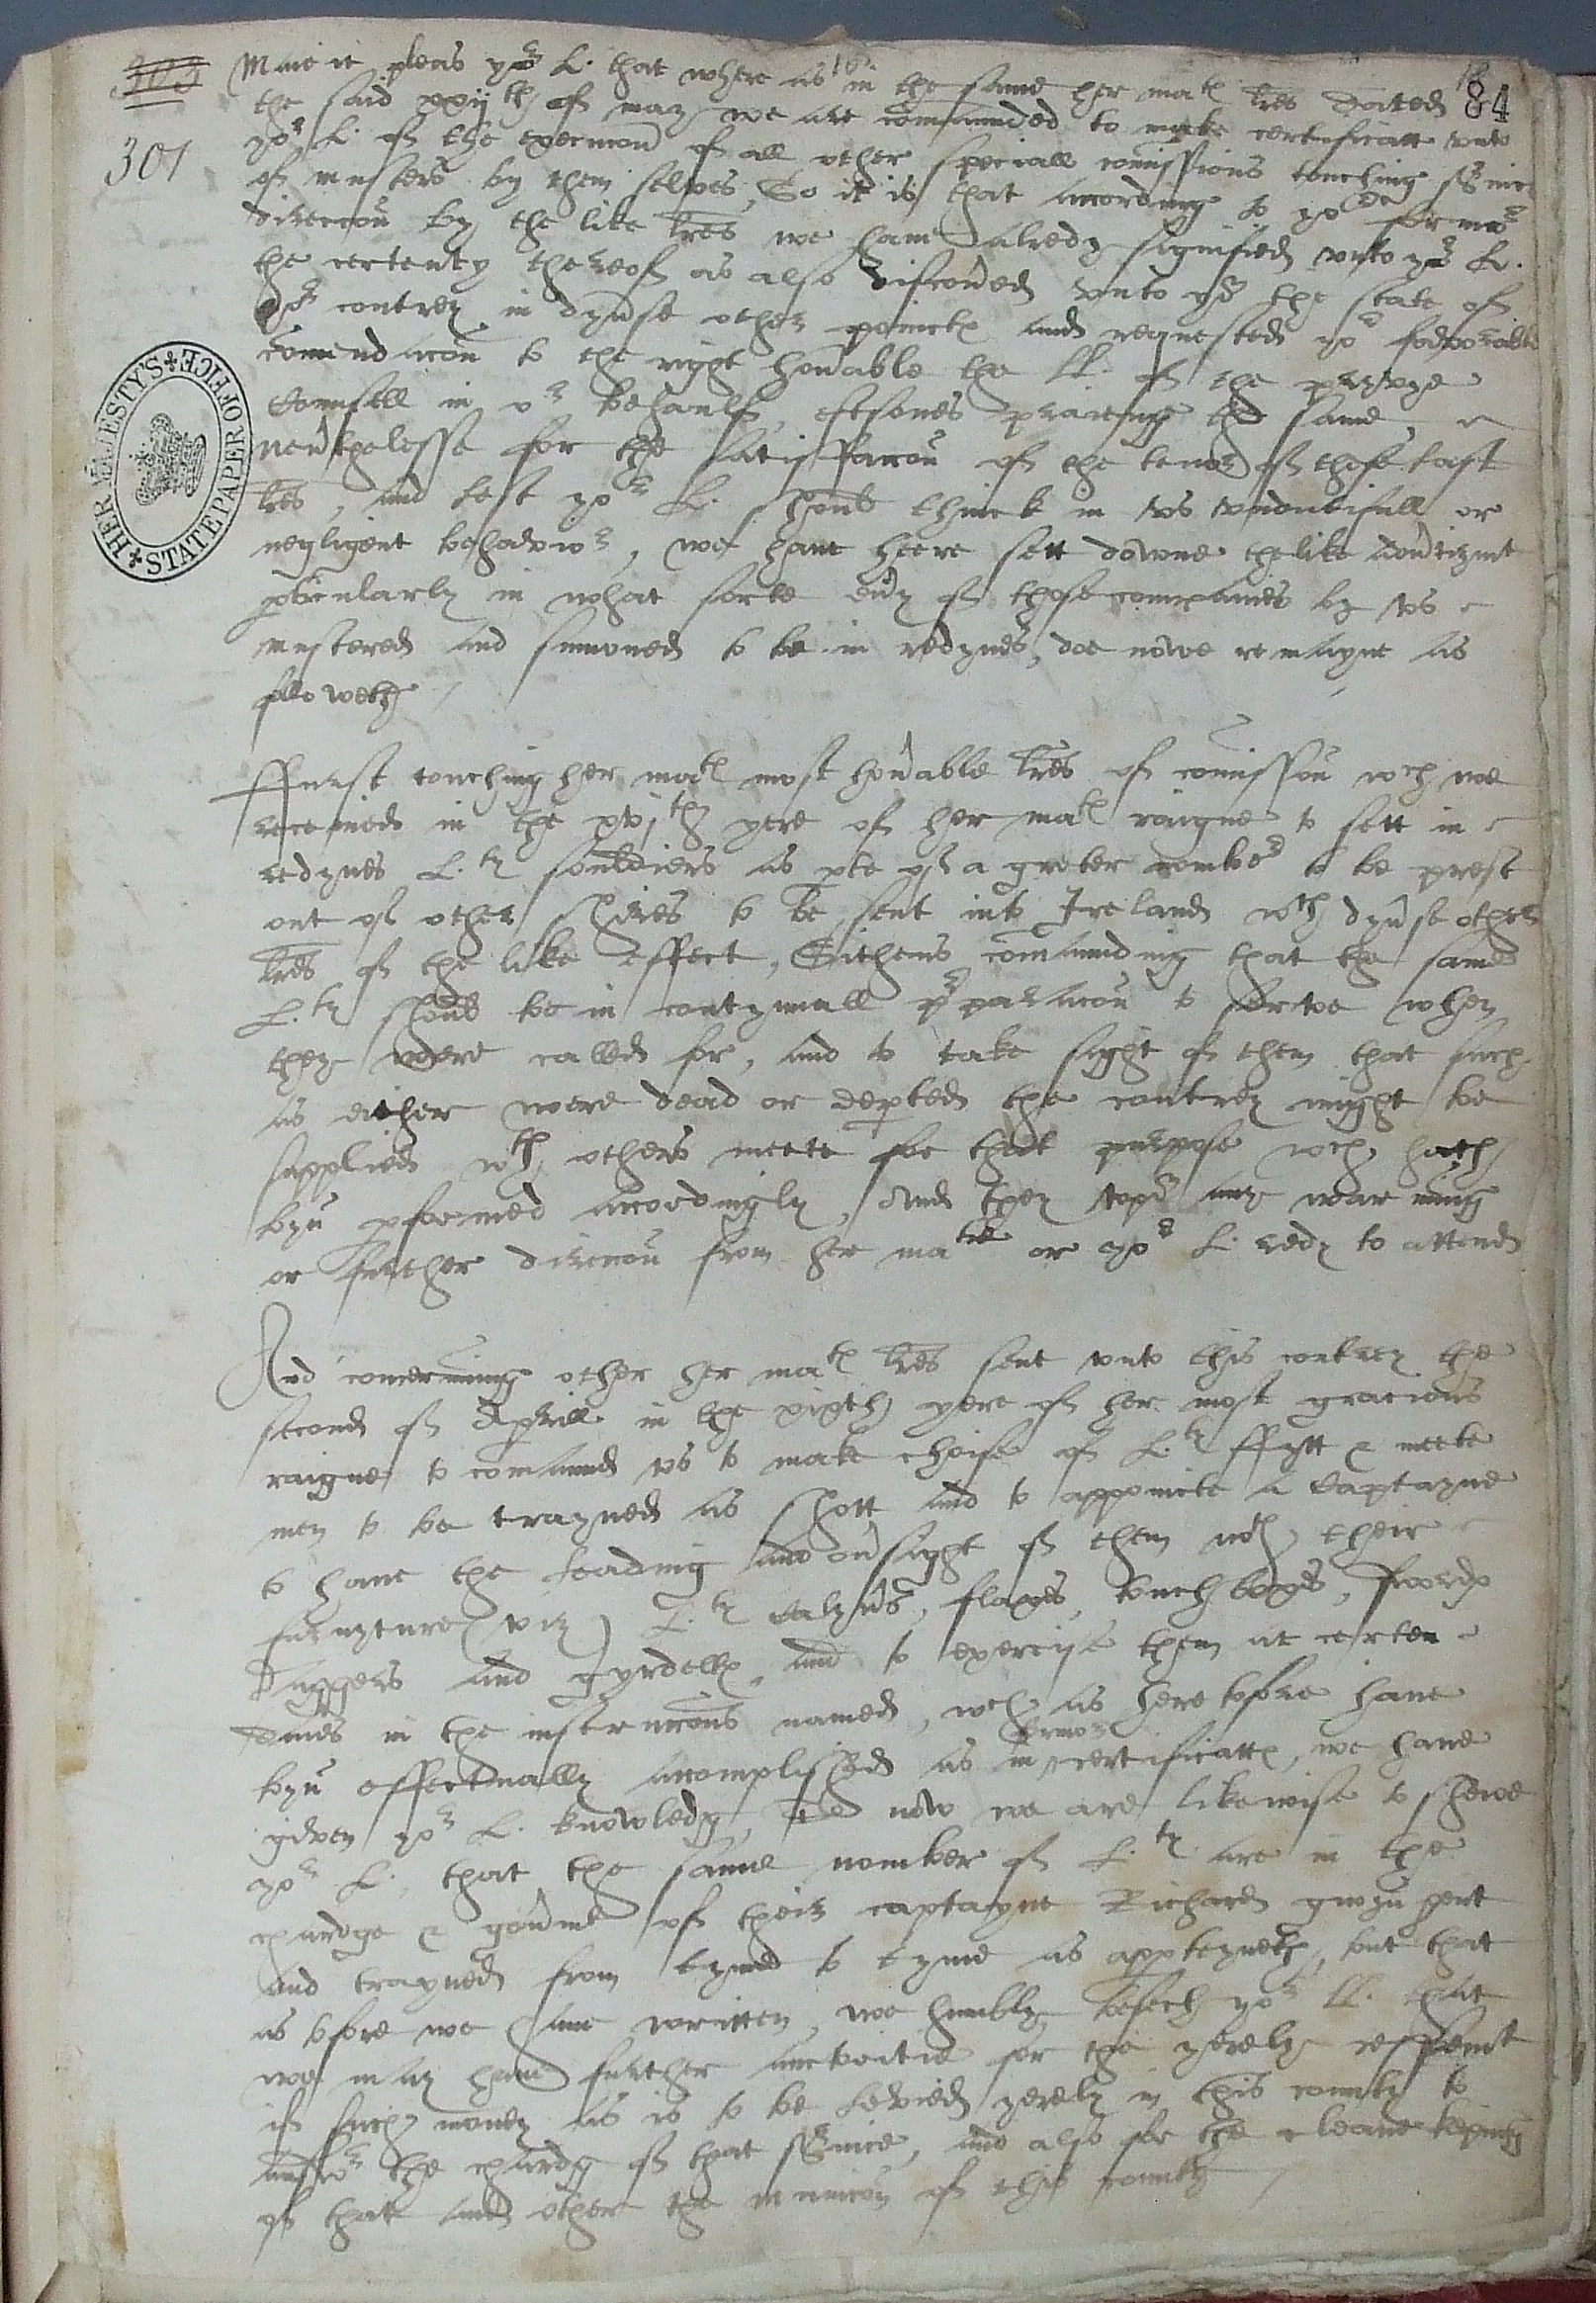 303
84
301
Maie it pleas yor L. that where as in the same her matꝭ lres dated
the said xxijth of may we are comaunded to make certificatt vnto
yor L. of the execucon of all other speciall comissions touching sṽice
of musters by them selves, So it is that according to yor former
direccon by the like lres we haue alredy signified vnto yor L.
the certenty thereof as also discoũed vnto yor the state of
or contrey in dyũse other poinctꝭ and requested yor favorable
comendacon to the right honãble the LL. of the pryvye
Counsell in or behaulf, eftsones praieng the same,
neũthelesse for the satisffaccon of the tenor of these last
lres, and lest yor L. should thinck in vs vndutifull or
negligent behavior, we haue heere sett downe the like
pticularly in what sorte eũy of those companies by vs
mustered and sumoned to be in redynes, doe nowe remayne as
followeth /
Ffurst touching her matꝭ most honãble lres of comission wch we
received in the xvjth yere of her matꝭ raigne to sett in
redynes L.tꝭ souldiers as pte of a greter nomber to be prest
out of other shires to be sent into Ireland wth dyũse other
lres of the like effect, Sithens comaunding that the same
L.tꝭ should be in contynuall pparacon to serve when
they were called for, and to take sight of them that such
as either were dead or depted the contrey might be
supplied wth others meete for that purpose wch hath
byn pformed accordingly, And they vpon any warning
or further direccon from her matie or yor L. redy to attend
And concerning other her matꝭ lres sent vnto this contrey the
second of Aprill in the xixth yere of her most gracious
raigne to comaund vs to make choise of L.tꝭ ffytt & meete
men to be trayned as shott and to appointe a Captayne
to haue the leading and oũsight of them wth their
furnyture (viz) L.tꝭ Calyũs, flaxes, touchboxes, swordꝭ
Daggers and gyrdellꝭ, and to exercise them at certen
daies in the instruccons named, wch as heretofore haue
byn effectually accomplished as in former certificattꝭ, we haue
given yor L. knowledg, so now we are likewise to shewe
yor L. that the same nomber of L.tꝭ are in the
chardge & goũme of their captayne Richard gwyn gent
and trayned from tyme to tyme as apptayneth, but that
as tofore we haue written, we humbly besech yor LL. that
we may haue further auctoritie for the yerely
of such money as is to be levied yerely in this county to
answer the chardg of that sṽice, and also for the cleane keping
of that and other the municon of this county /
HER MAJESTY'S STATE PAPER OFFICE